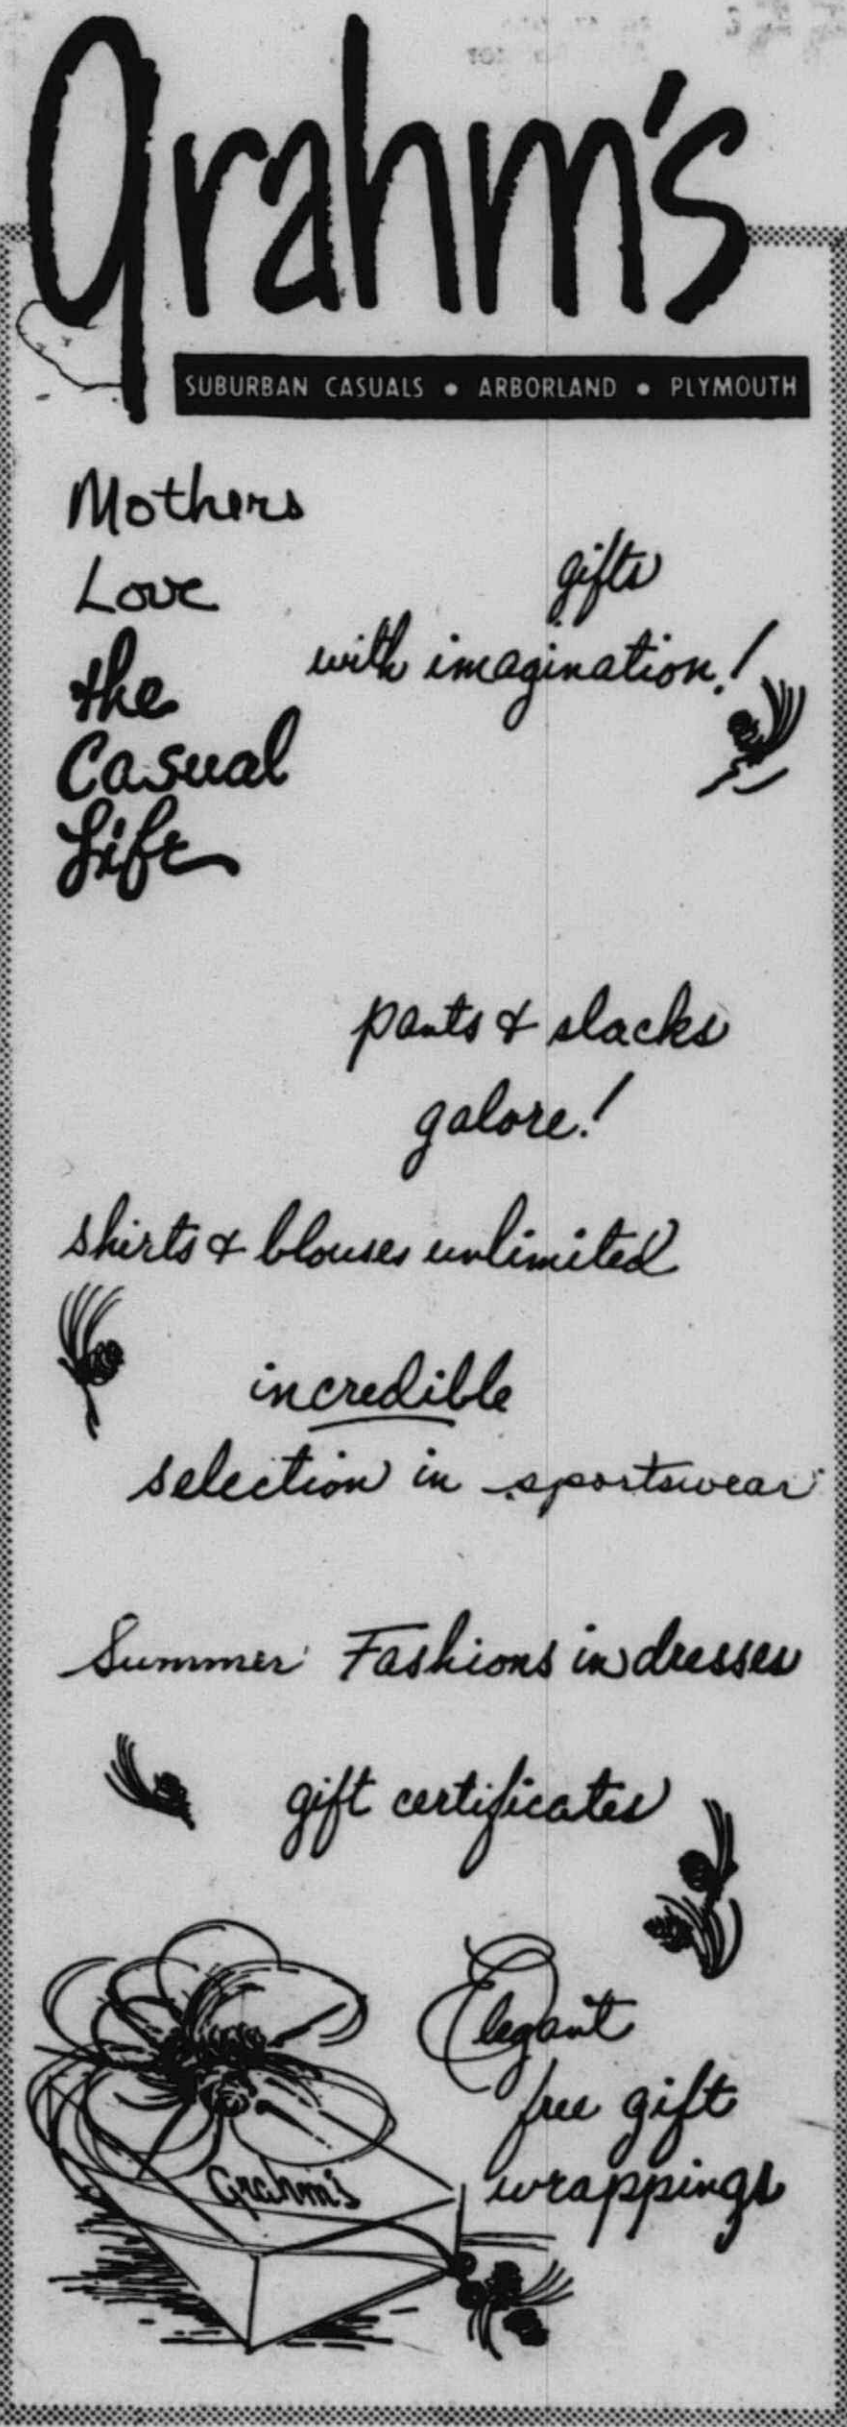 Grahm's
SUBURBAN CASUALS • ARBORLAND • PLYMOUTH
Mothers
Love
the
Casual
Life
gifts
with imagination!
pants & slacks
galore!
shirts & blouses unlimited
incredible
selection in sportswear
Summer Fashions in dresses
gift certificates
Elegant
free gift
wrappings
Grahm's